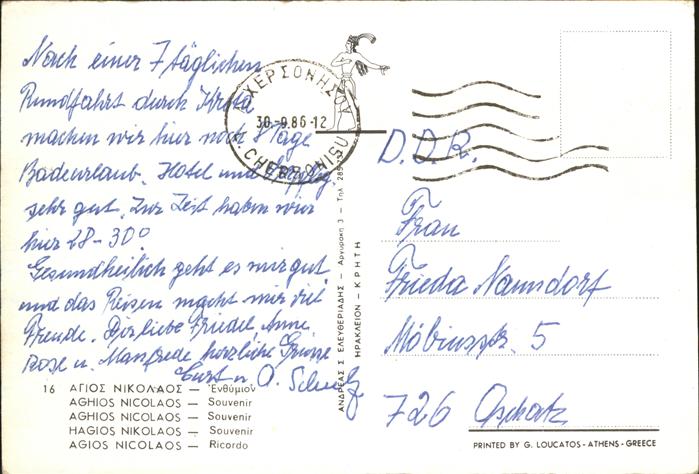 Nach einer 7 täglichen
Rundfahrt durch Kreta
machen wir hier noch 8 Tage
Badeurlaub. Hotel und Verpflg.
sehr gut. Zur Zeit haben wir
hier 28-30°
Gesundheitlich geht es mir gut
und das Reisen macht mir viel
Freude. Dir liebe Friedel, Anne
Rose u. Manfrede herzliche Grüsse
Curt u. O.
16 ΑΓΙΟΣ ΝΙΚΟΛΑΟΣ — Ἐνθύμιον
AGHIOS NICOLAOS — Souvenir
AGHIOS NICOLAOS — Souvenir
HAGIOS NIKOLAOS — Souvenir
AGIOS NICOLAOS — Ricordo
ΧΕΡΣΟΝΗΣΟΥ
30.-9.86-12
CHERSONISU
ΑΝΔΡΕΑΣ Σ ΕΛΕΥΘΕΡΙΑΔΗΣ - Αργυράκη 3 - Τηλ.
ΗΡΑΚΛΕΙΟΝ - ΚΡΗΤΗ
D.D.R.
Frau
Frieda Nanndorf
Möbiusstr. 5
726 Oschatz
PRINTED BY G. LOUCATOS - ATHENS - GREECE